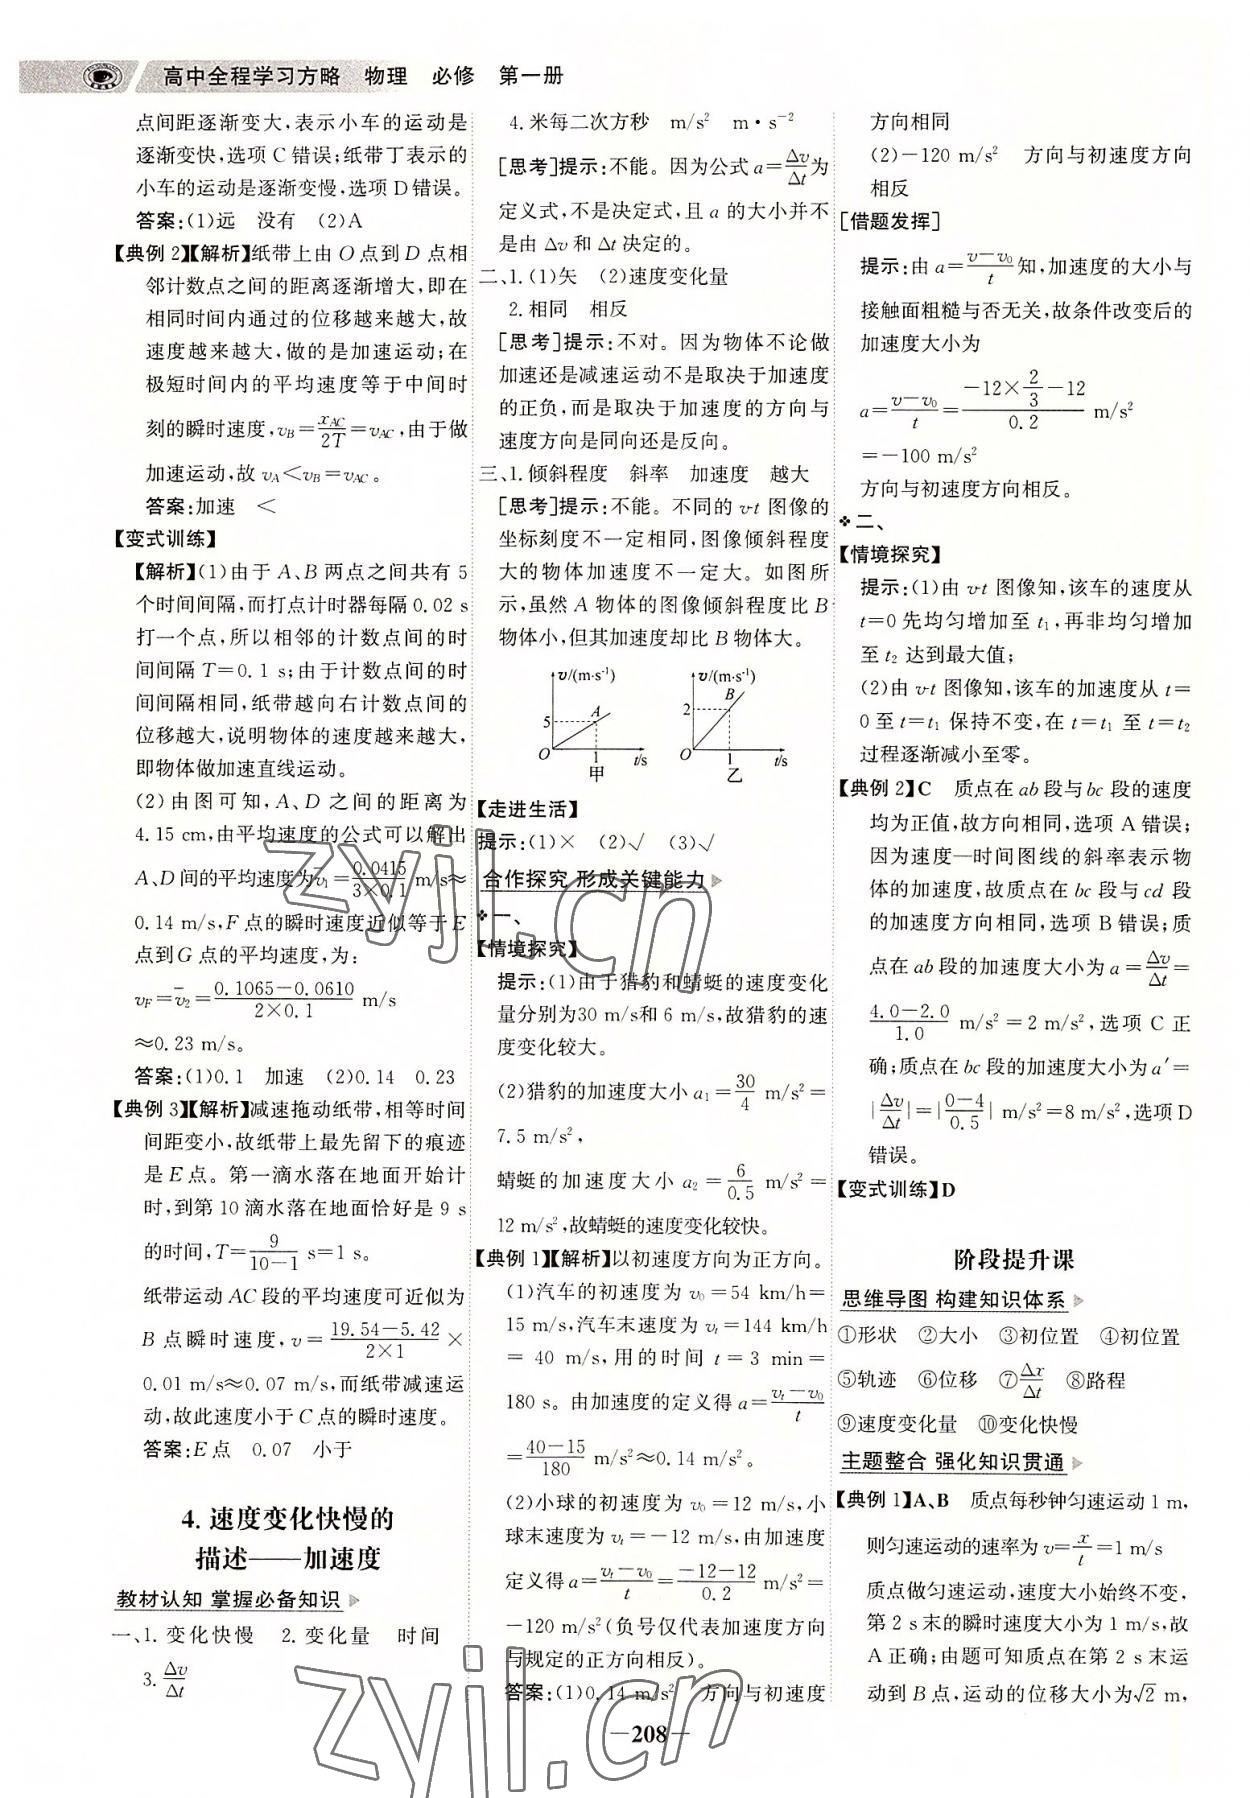 高中全程学习方略 物理 必修 第一册
点间距逐渐变大,表示小车的运动是
逐渐变快,选项C错误;纸带丁表示的
小车的运动是逐渐变慢,选项D错误。
答案:(1)远 没有 (2)A
【典例2】【解析】纸带上由O点到D点相
邻计数点之间的距离逐渐增大,即在
相同时间内通过的位移越来越大,故
速度越来越大,做的是加速运动;在
极短时间内的平均速度等于中间时
刻的瞬时速度,v_B=x_AC/2T=v_AC,由于做
加速运动,故v_A<v_B=v_AC。
答案:加速 <
【变式训练】
【解析】(1)由于A、B两点之间共有5
个时间间隔,而打点计时器每隔0.02 s
打一个点,所以相邻的计数点间的时
间间隔T=0.1 s;由于计数点间的时
间间隔相同,纸带越向右计数点间的
位移越大,说明物体的速度越来越大,
即物体做加速直线运动。
(2)由图可知,A、D之间的距离为
4.15 cm,由平均速度的公式可以解出
A、D间的平均速度为v̄₁=0.0415/(3×0.1) m/s≈
0.14 m/s,F点的瞬时速度近似等于E
点到G点的平均速度,为:
v_F=v̄₂=(0.1065-0.0610)/(2×0.1) m/s
≈0.23 m/s。
答案:(1)0.1 加速 (2)0.14 0.23
【典例3】【解析】减速拖动纸带,相等时间
间距变小,故纸带上最先留下的痕迹
是E点。第一滴水落在地面开始计
时,到第10滴水落在地面恰好是9 s
的时间,T=9/(10-1) s=1 s。
纸带运动AC段的平均速度可近似为
B点瞬时速度,v=(19.54-5.42)/(2×1)×
0.01 m/s≈0.07 m/s,而纸带减速运
动,故此速度小于C点的瞬时速度。
答案:E点 0.07 小于
4. 速度变化快慢的
描述——加速度
教材认知 掌握必备知识
一、1.变化快慢 2.变化量 时间
3.Δv/Δt
4.米每二次方秒 m/s² m·s⁻²
[思考]提示:不能。因为公式a=Δv/Δt为
定义式,不是决定式,且a的大小并不
是由Δv和Δt决定的。
二、1.(1)矢 (2)速度变化量
2.相同 相反
[思考]提示:不对。因为物体不论做
加速还是减速运动不是取决于加速度
的正负,而是取决于加速度的方向与
速度方向是同向还是反向。
三、1.倾斜程度 斜率 加速度 越大
[思考]提示:不能。不同的v-t图像的
坐标刻度不一定相同,图像倾斜程度
大的物体加速度不一定大。如图所
示,虽然A物体的图像倾斜程度比B
物体小,但其加速度却比B物体大。
v/(m·s⁻¹) 5 A O 1 t/s 甲
v/(m·s⁻¹) 2 B O 1 t/s 乙
【走进生活】
提示:(1)× (2)√ (3)√
合作探究 形成关键能力
一、
【情境探究】
提示:(1)由于猎豹和蜻蜓的速度变化
量分别为30 m/s和6 m/s,故猎豹的速
度变化较大。
(2)猎豹的加速度大小a₁=30/4 m/s²=
7.5 m/s²,
蜻蜓的加速度大小a₂=6/0.5 m/s²=
12 m/s²,故蜻蜓的速度变化较快。
【典例1】【解析】以初速度方向为正方向。
(1)汽车的初速度为v₀=54 km/h=
15 m/s,汽车末速度为v_t=144 km/h
=40 m/s,用的时间t=3 min=
180 s。由加速度的定义得a=(v_t-v₀)/t
=(40-15)/180 m/s²≈0.14 m/s²。
(2)小球的初速度为v₀=12 m/s,小
球末速度为v_t=-12 m/s,由加速度
定义得a=(v_t-v₀)/t=(-12-12)/0.2 m/s²=
-120 m/s²(负号仅代表加速度方向
与规定的正方向相反)。
答案:(1)0.14 m/s² 方向与初速度
方向相同
(2)-120 m/s² 方向与初速度方向
相反
[借题发挥]
提示:由a=(v-v₀)/t知,加速度的大小与
接触面粗糙与否无关,故条件改变后的
加速度大小为
a=(v-v₀)/t=(-12×2/3-12)/0.2 m/s²
=-100 m/s²
方向与初速度方向相反。
二、
【情境探究】
提示:(1)由v-t图像知,该车的速度从
t=0先均匀增加至t₁,再非均匀增加
至t₂达到最大值;
(2)由v-t图像知,该车的加速度从t=
0至t=t₁保持不变,在t=t₁至t=t₂
过程逐渐减小至零。
【典例2】C 质点在ab段与bc段的速度
均为正值,故方向相同,选项A错误;
因为速度—时间图线的斜率表示物
体的加速度,故质点在bc段与cd段
的加速度方向相同,选项B错误;质
点在ab段的加速度大小为a=Δv/Δt=
(4.0-2.0)/1.0 m/s²=2 m/s²,选项C正
确;质点在bc段的加速度大小为a′=
|Δv/Δt|=|(0-4)/0.5| m/s²=8 m/s²,选项D
错误。
【变式训练】D
阶段提升课
思维导图 构建知识体系
①形状 ②大小 ③初位置 ④初位置
⑤轨迹 ⑥位移 ⑦Δx/Δt ⑧路程
⑨速度变化量 ⑩变化快慢
主题整合 强化知识贯通
【典例1】A、B 质点每秒钟匀速运动1 m,
则匀速运动的速率为v=x/t=1 m/s
质点做匀速运动,速度大小始终不变,
第2 s末的瞬时速度大小为1 m/s,故
A正确;由题可知质点在第2 s末运
动到B点,运动的位移大小为√2 m,
—208—
zyjl.cn
zyjl.cn